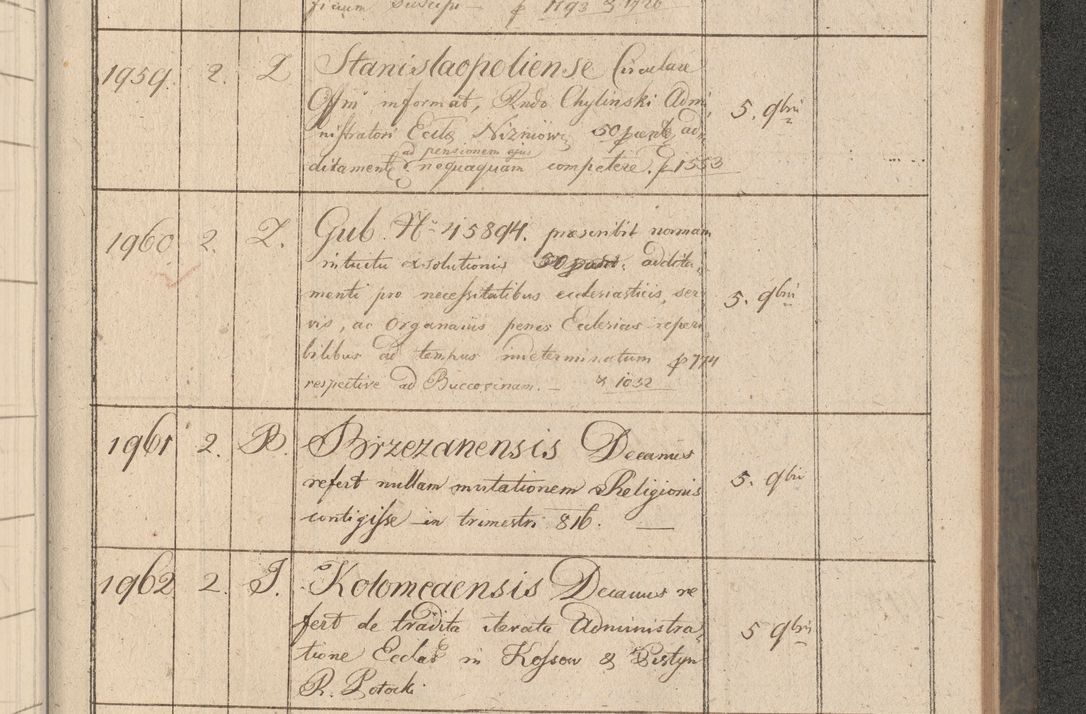 ƒ 1793 & 1726
1959. 2. Z Stanislaopoliense Circulare
Offm informat, Rndo Chylinski Admi,
nistratori Eccle Nizniow 50 ad,
ad pensionem ejus
ditamente nequaquam competere. ƒ 1553
5. 9bris
1960 2. Z. Gub. No 45894. præscribit normam
intuitu exsolutionis 50 addita,
menti pro necessitatibus ecclesiasticis, ser,
vis, ac Organariis penes Ecclesias reperi
bilibus ad tempus indeterminatum ƒ 774
respective ad Buccovinam. — & 1032
5. 9bris
1961 2. B. Brzezanensis Decanus
refert nullam mutationem Religionis
contigisse in trimestri 816. —
5. 9bris
1962 2. I. Kolomeaensis Decanus re
fert de tradita iterata Administra,
tione Ecclae in Kossow & Pistyn
R. Potocki
5 9bris